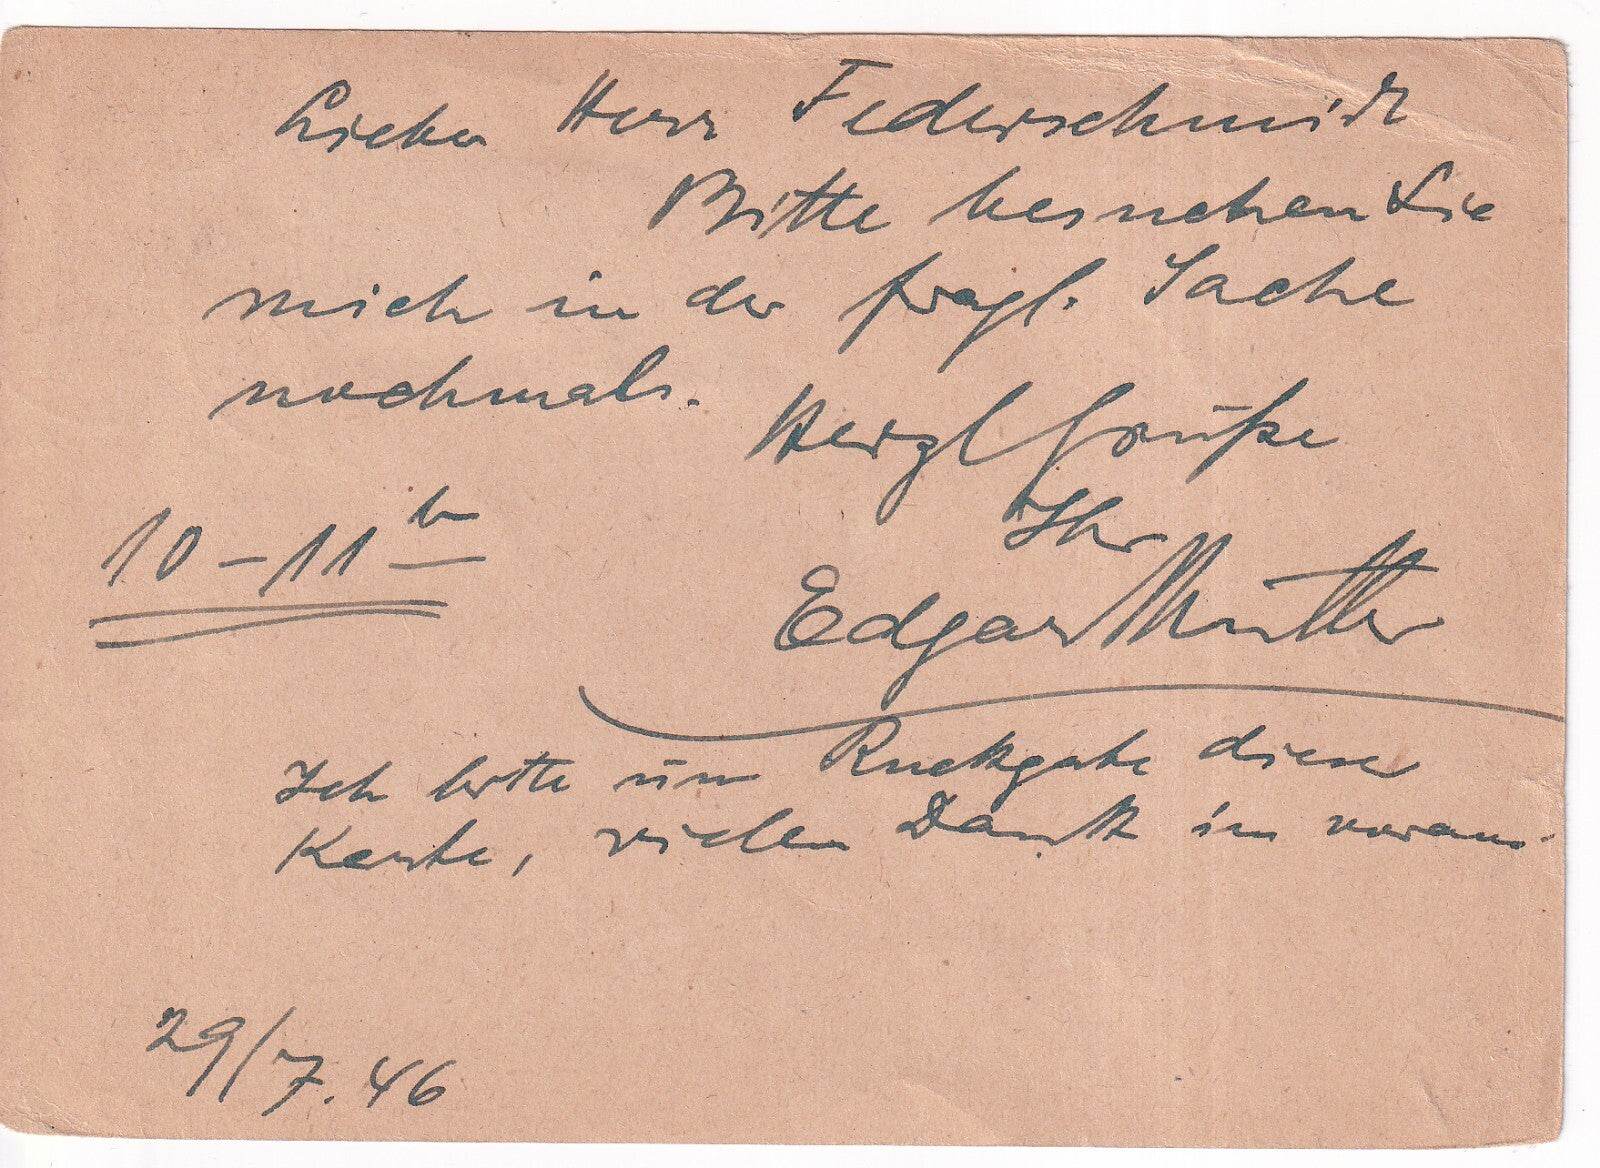 Lieber Herr Federschmidt
Bitte besuchen Sie
mich in der fragl. Sache
nochmals.
Herzl Grüße
10-11 h
Ihr
Edgar Müller
Ich bitte um Rückgabe dieser
Karte, vielen Dank im voraus.
29/7.46